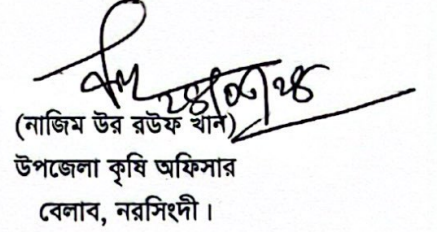 (নাজিম উর রউফ খান)
উপজেলা কৃষি অফিসার
বেলাব, নরসিংদী।